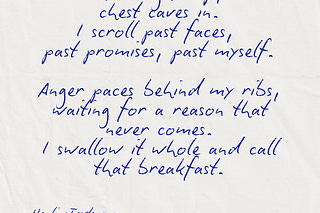 chest caves in.
I scroll past faces,
past promises, past myself.
Anger paces behind my ribs,
waiting for a reason that
never comes.
I swallow it whole and call
that breakfast.